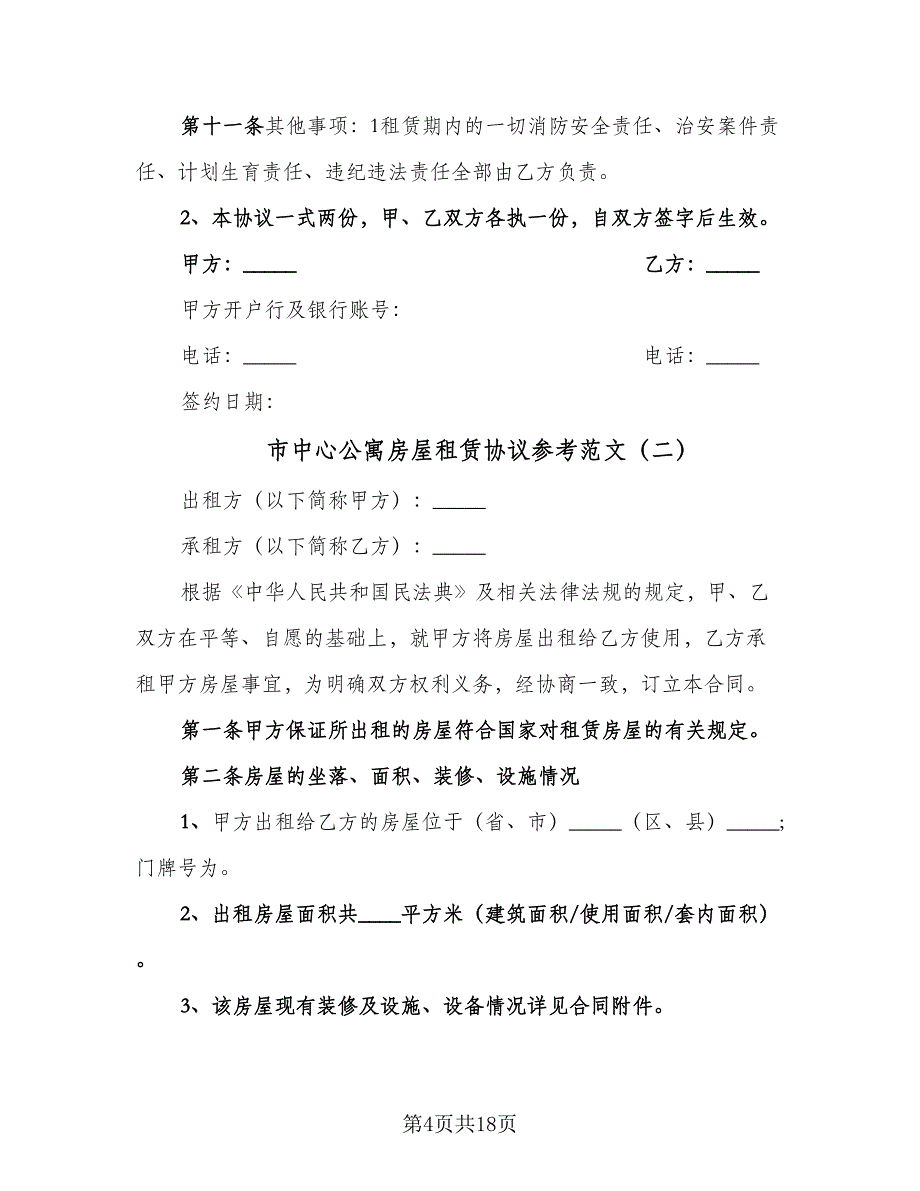 第十一条其他事项：1租赁期内的一切消防安全责任、治安案件责
任、计划生育责任、违纪违法责任全部由乙方负责。
2、本协议一式两份，甲、乙双方各执一份，自双方签字后生效。
甲方：_____ 乙方：_____
甲方开户行及银行账号：
电话：_____ 电话：_____
签约日期：
市中心公寓房屋租赁协议参考范文（二）
出租方（以下简称甲方）：_____
承租方（以下简称乙方）：_____
根据《中华人民共和国民法典》及相关法律法规的规定，甲、乙
双方在平等、自愿的基础上，就甲方将房屋出租给乙方使用，乙方承
租甲方房屋事宜，为明确双方权利义务，经协商一致，订立本合同。
第一条甲方保证所出租的房屋符合国家对租赁房屋的有关规定。
第二条房屋的坐落、面积、装修、设施情况
1、甲方出租给乙方的房屋位于（省、市）_____（区、县）_____;
门牌号为。
2、出租房屋面积共____平方米（建筑面积/使用面积/套内面积）
。
3、该房屋现有装修及设施、设备情况详见合同附件。
第4页共18页